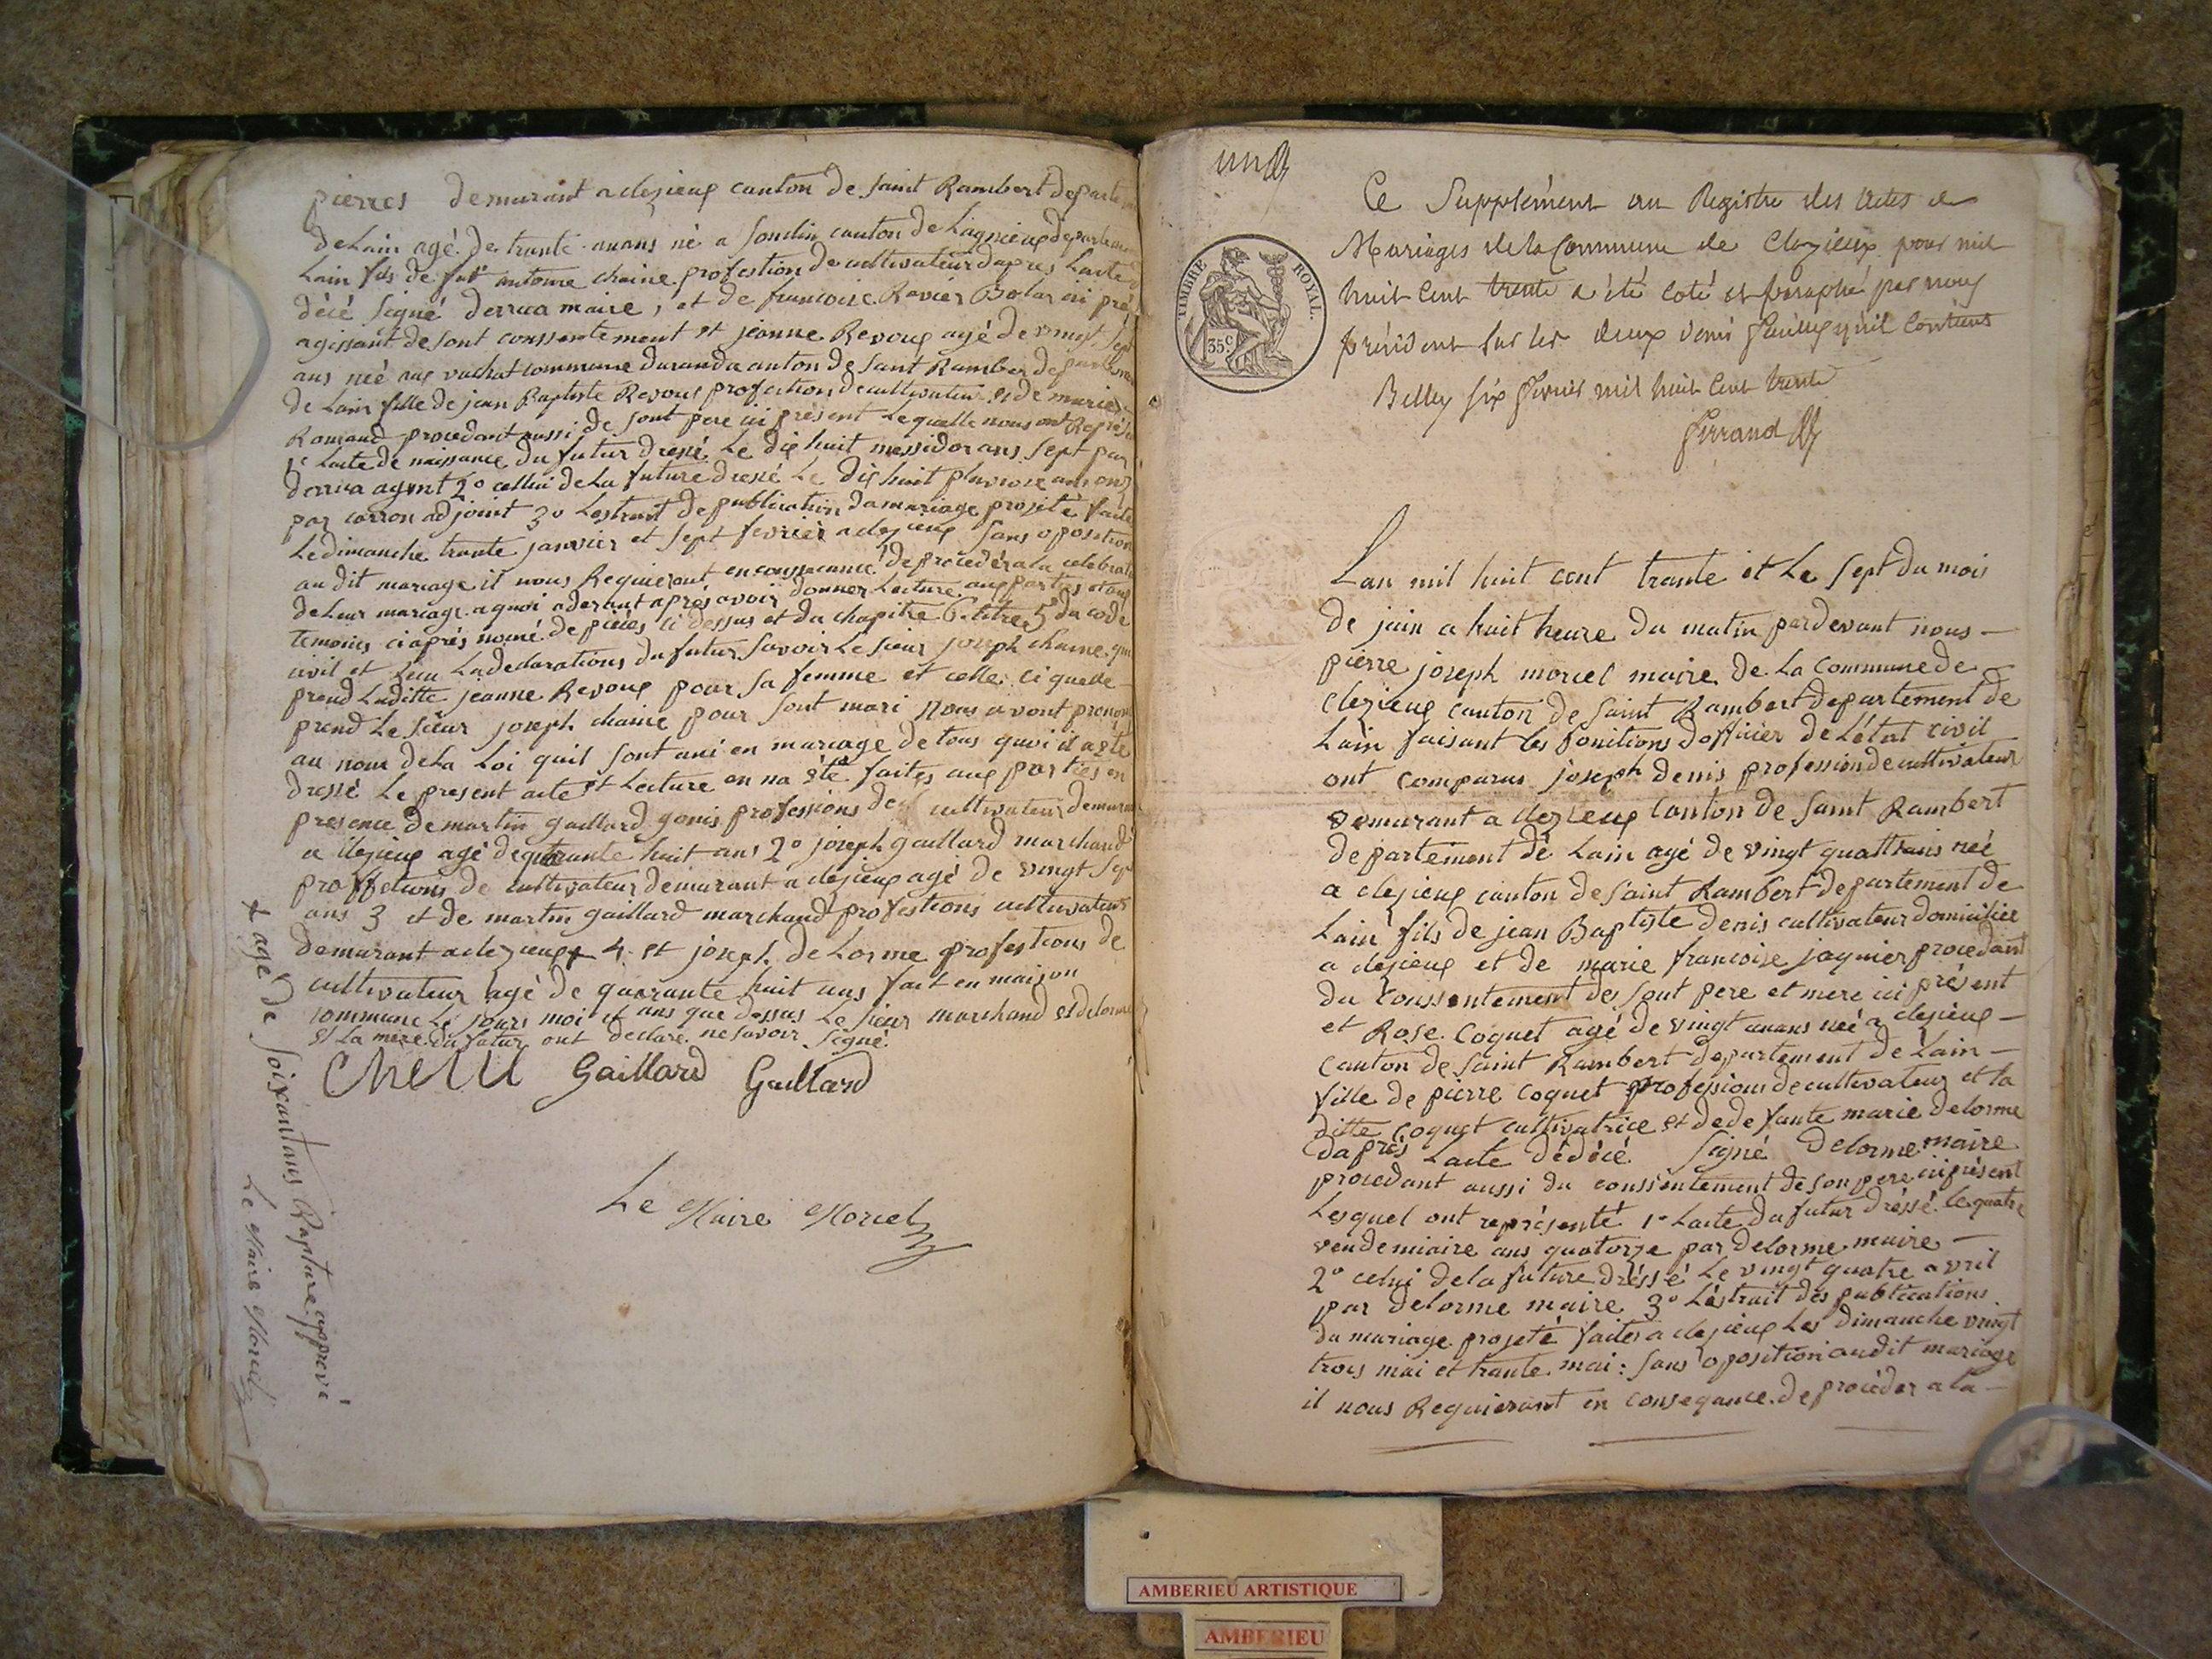 pierres demurant a clezieux canton de saint Rambert departem
de Lain agé de trante un ans né a Soudin canton de Lagnieux departem
Lain fils de fut antoine chaine profestion de cultivateur dapres Lacte d
décé signé derrua maire, et de francoise Ravier Bolar ici pré
agissant de sont conssentement et jeanne Revoux agé de vingt sept
ans neé aux vachat commune daranda canton de sant Ramber departem
de Lain fille de jean Baptiste Revoux profestion de cultivateur et de marie
Romand procedant aussi de sont pere ici present Le quelle nous ont Represe
1º Lacte de naissance du futur dressé Le dix huit messidor ans sept par
derrua agent 2º cellui de La future dressé Le dix huit pluviose ans onz
par carron adjoint 3º Lestrait de publication da mariage projeté faite
Le dimanche trante janvier et sept fevrier a clezieux Sans oposition
au dit mariage il nous Requierant en conssecance de procedér a la celebrati
de Leur mariage a quoi aderant aprés avoir donner Lecture aux parties et aux
temoins ci aprés nomé de pieces ci dessus et du chapitre 6 titre 5 du code
civil et Recu La declarations du futur savoir Le sieur joseph chaine qui
prend Laditte jeanne Revoux pour sa femme et celle ci quelle
prend Le sieur joseph chaine pour sont mari Nous avont prenon
au nom de La Loi quil sont uni en mariage de tous quoi il a eté
dressé Le present acte et Lecture en na été faites aux parties en
presence de martin gaillard gonis professions de cultivateur demurant
a clezieux agé de quarante huit ans 2º joseph gaillard marchand
proffetions de cultivateur demurant a clezieux agé de vingt sept
ans 3 et de martin gaillard marchand profestions cultivateur
demurant a clezieux + 4 et joseph de Lorme profestions de
cultivateur agé de quarante huit ans fait en maison
commune Le jours moi et ans que dessus Le sieur marchand et delorme
et La mere du futur ont declaré ne savoir signé.
Chelu Gaillard Gaillard
Le Maire Morcel
+ agé de soixantans Raptare apprové
Le Maire Morcel
un
Ce Supplément au Registre des Actes de
Mariages de la Commune de Clezieux pour mil
huit Cent trente a été coté et paraphé par nous
président sur les deux demi feuilles qu'il Contient
Belley six février mil huit Cent trente
Ferrand
TIMBRE ROYAL.
35 c
Lan mil huit cent trante et Le sept du mois
de juin a huit heure du matin pardevant nous
pierre joseph morcel maire de La Commune de
clezieux canton de saint Rambert departement de
Lain faisant les fonitions d'officier de L'état civil
ont comparus joseph denis profession de cultivateur
demurant a clezieux Canton de saint Rambert
departement dé Lain agé de vingt quattrans neé
a clezieux canton de saint Rambert departement de
Lain fils de jean Baptiste denis cultivateur domicilié
a clezieux et de marie francoise joguier procedant
du conssentement de sont pere et mere ici présent
et Rose Coquet agé de vingt unans neé a clezieux
Canton de saint Rambert departement de Lain
fille de pierre coquet professions de cultivateur et la
ditte coquet cultivatrice et de defante marie delorme
daprés Lacte dédécé signé delorme maire
procedant aussi du conssentement de son pere ici présent
Lesquel ont représenté 1º Lacte du futur dréssé le quatre
vendemiaire ans quatorze par delorme maire
2º celui de la future dréssé Le vingt quatre avril
par delorme maire 3º Léstrait des publications
du mariage projeté faites a clezieux Les dimanche vingt
trois mai et trante mai : sans oposition audit mariage
il nous Requierant en consequance de procéder a la
AMBERIEU ARTISTIQUE
AMBERIEU